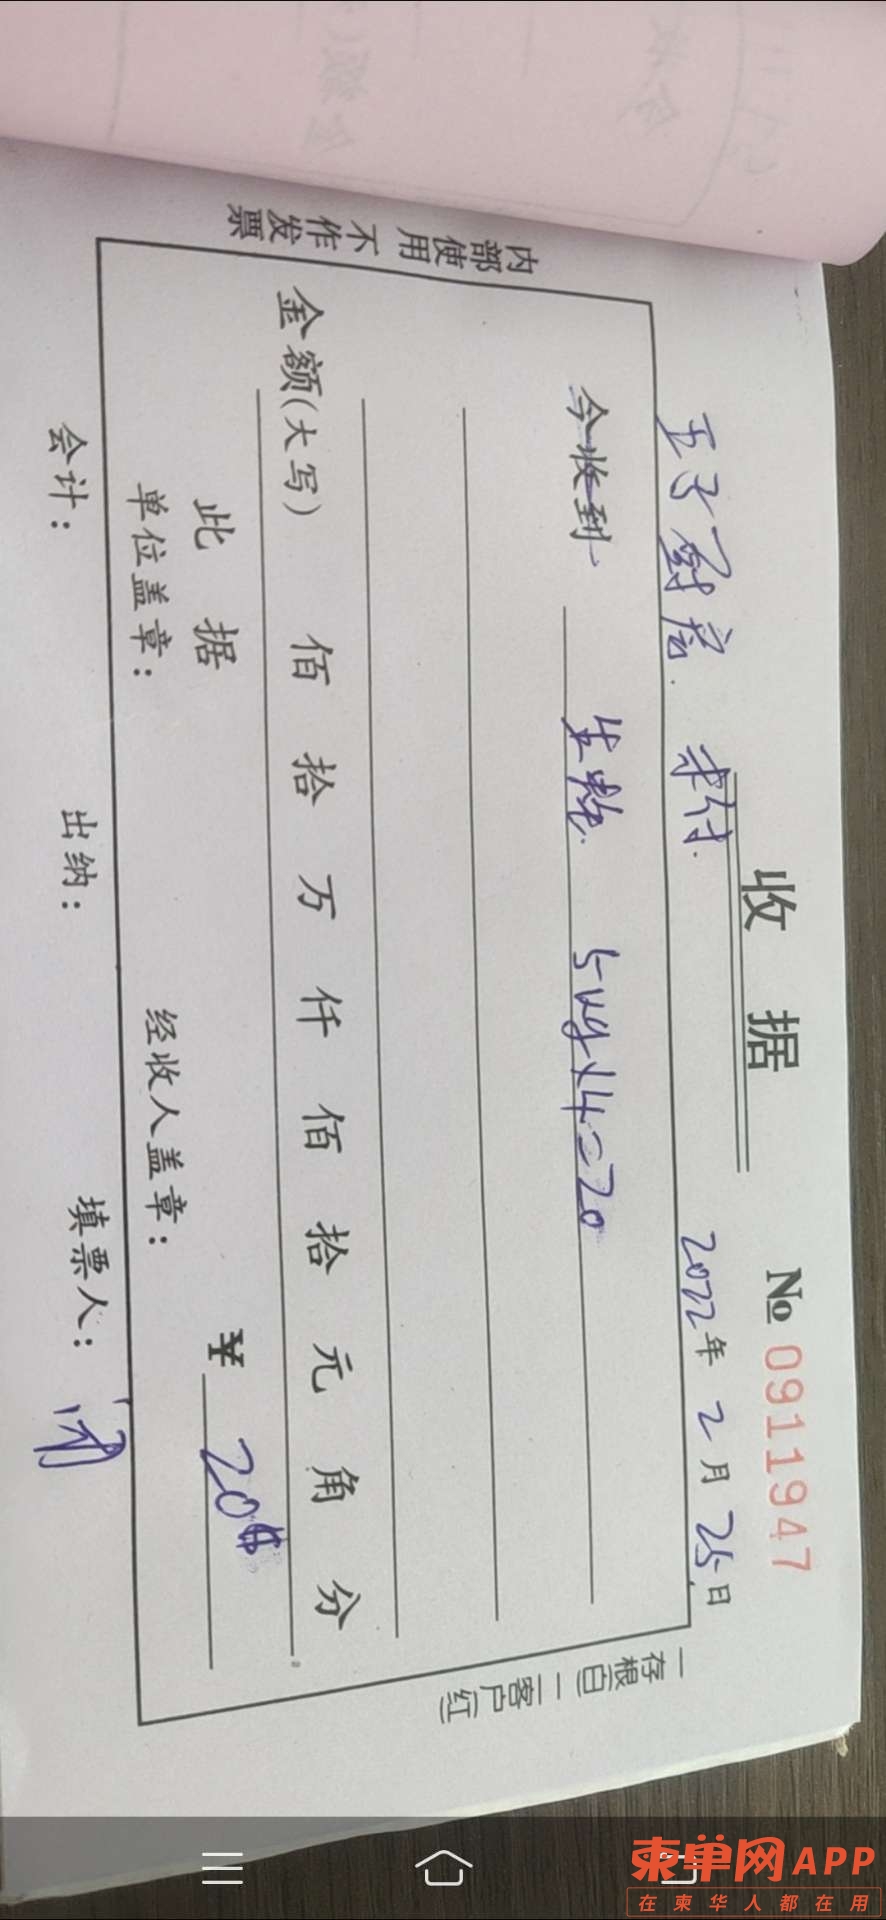 收据
№ 0911947
未付.
2022年2月25日
今收到 生蚝. 5kg×4=20
金额(大写) 佰 拾 万 仟 佰 拾 元 角 分。
此据
¥ 20$
单位盖章： 经收人盖章：
会计： 出纳： 填票人：
内部使用不作发票
一存根(白) 二客户(红)
柬单网APP
在柬华人都在用